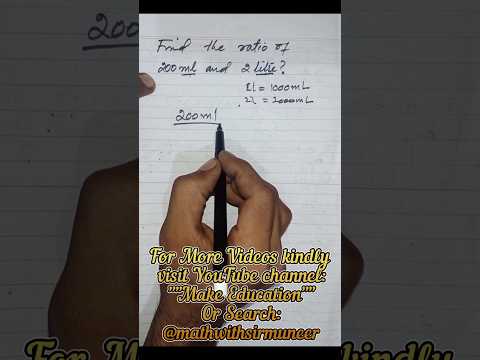 200ml
Find the ratio of
200ml and 2 litre?
1l = 1000mL
2l = 2000mL
200ml
For More Videos kindly
visit YouTube channel:
""Make Education""
Or Search:
@mathwithsirmuneer